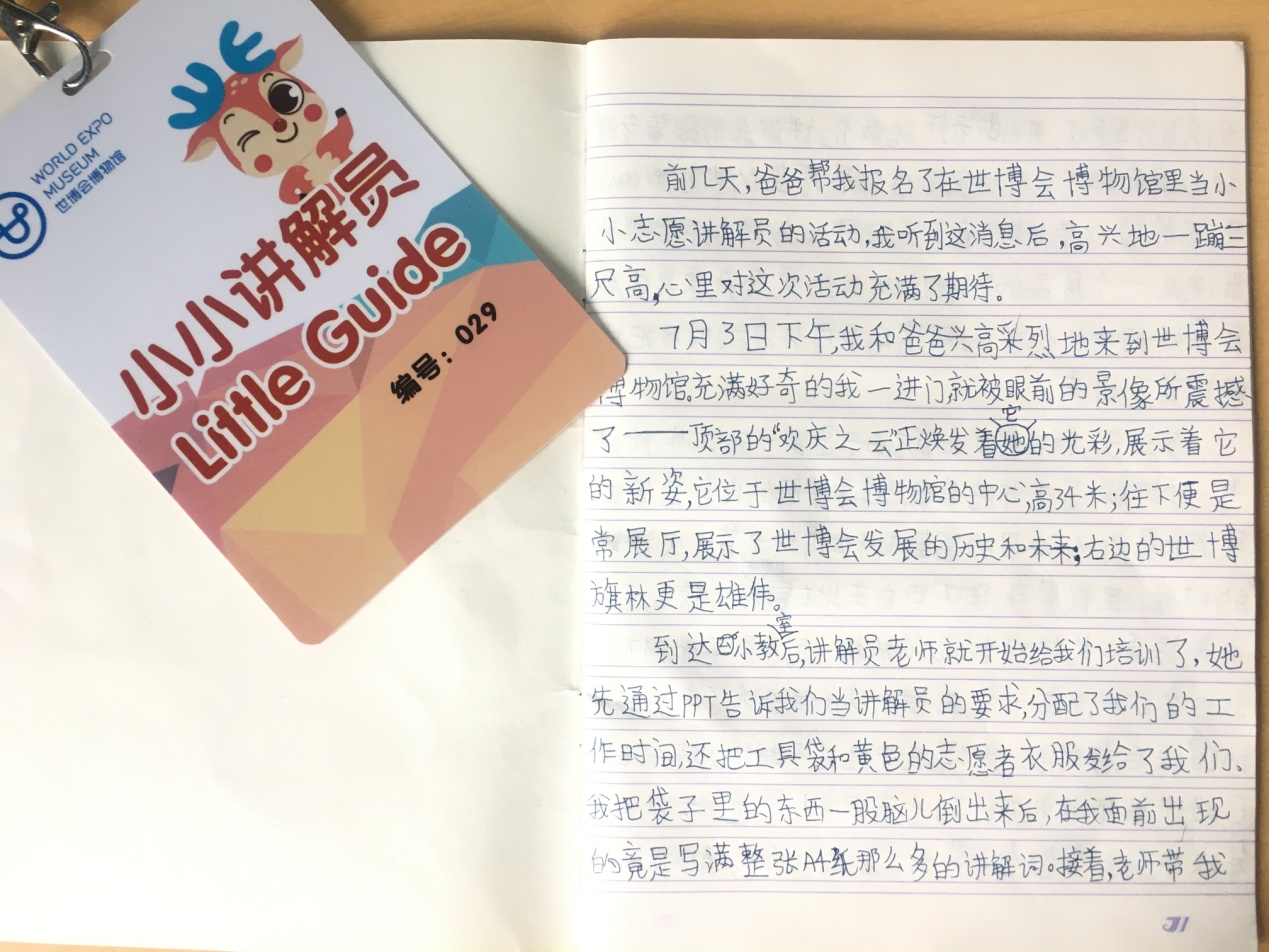 WORLD EXPO
MUSEUM
世博会博物馆
小小讲解员
Little Guide
编号：029
前几天,爸爸帮我报名了在世博会博物馆里当小
小志愿讲解员的活动,我听到这消息后,高兴地一蹦三
尺高,心里对这次活动充满了期待。
7月3日下午,我和爸爸兴高采烈地来到世博会
博物馆。充满好奇的我一进门,就被眼前的景像所震撼
它
了——顶部的“欢庆之云”正焕发着她的光彩,展示着它
的新姿,它位于世博会博物馆的中心,高34米;往下便是
常展厅,展示了世博会发展的历史和未来;右边的世博
旗林更是雄伟。
室
到达小教后,讲解员老师就开始给我们培训了,她
先通过PPT告诉我们当讲解员的要求,分配了我们的工
作时间,还把工具袋和黄色的志愿者衣服发给了我们、
我把袋子里的东西一股脑儿倒出来后,在我面前出现
的竟是写满整张A4纸那么多的讲解词。接着,老师带我